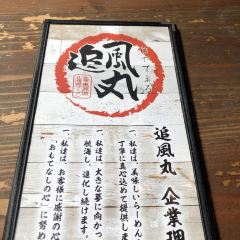 追風丸
追風丸 企業理
一、私達は、美味しいらーめん
丁寧に真心込めて提供しま
一、私達は、大きな夢に向かっ
挑海し、進化し続けます
一、私達は、お客様に感謝の心
「おもてなしの心」に努め